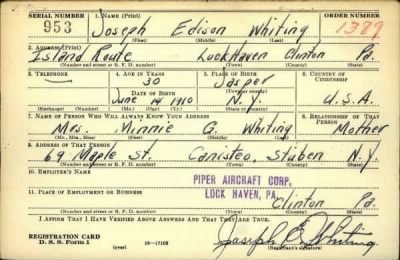 SERIAL NUMBER 1. NAME (Print) ORDER NUMBER
953 Joseph Edison Whiting 1389
(First) (Middle) (Last)
2. ADDRESS (Print)
Island Route Lock Haven Clinton Pa.
(Number and street or R. F. D. number) (Town) (County) (State)
3. TELEPHONE 4. AGE IN YEARS 5. PLACE OF BIRTH 6. COUNTRY OF CITIZENSHIP
30 Jasper
DATE OF BIRTH (Town or county)
June 14 1910 N.Y. U.S.A.
(Exchange) (Number) (Mo.) (Day) (Yr.) (State or country)
7. NAME OF PERSON WHO WILL ALWAYS KNOW YOUR ADDRESS 8. RELATIONSHIP OF THAT PERSON
Mrs. Minnie G. Whiting Mother
(Mr., Mrs., Miss) (First) (Middle) (Last)
9. ADDRESS OF THAT PERSON
69 Maple St. Canisteo, Stuben N.Y.
(Number and street or R. F. D. number) (Town) (County) (State)
10. EMPLOYER'S NAME
PIPER AIRCRAFT CORP.
LOCK HAVEN, PA.
11. PLACE OF EMPLOYMENT OR BUSINESS
Clinton Pa.
(Number and street or R. F. D. number) (Town) (County) (State)
I AFFIRM THAT I HAVE VERIFIED ABOVE ANSWERS AND THAT THEY ARE TRUE.
REGISTRATION CARD
D. S. S. Form 1 (over) 16—17105 Joseph E. Whiting
(Registrant's signature)